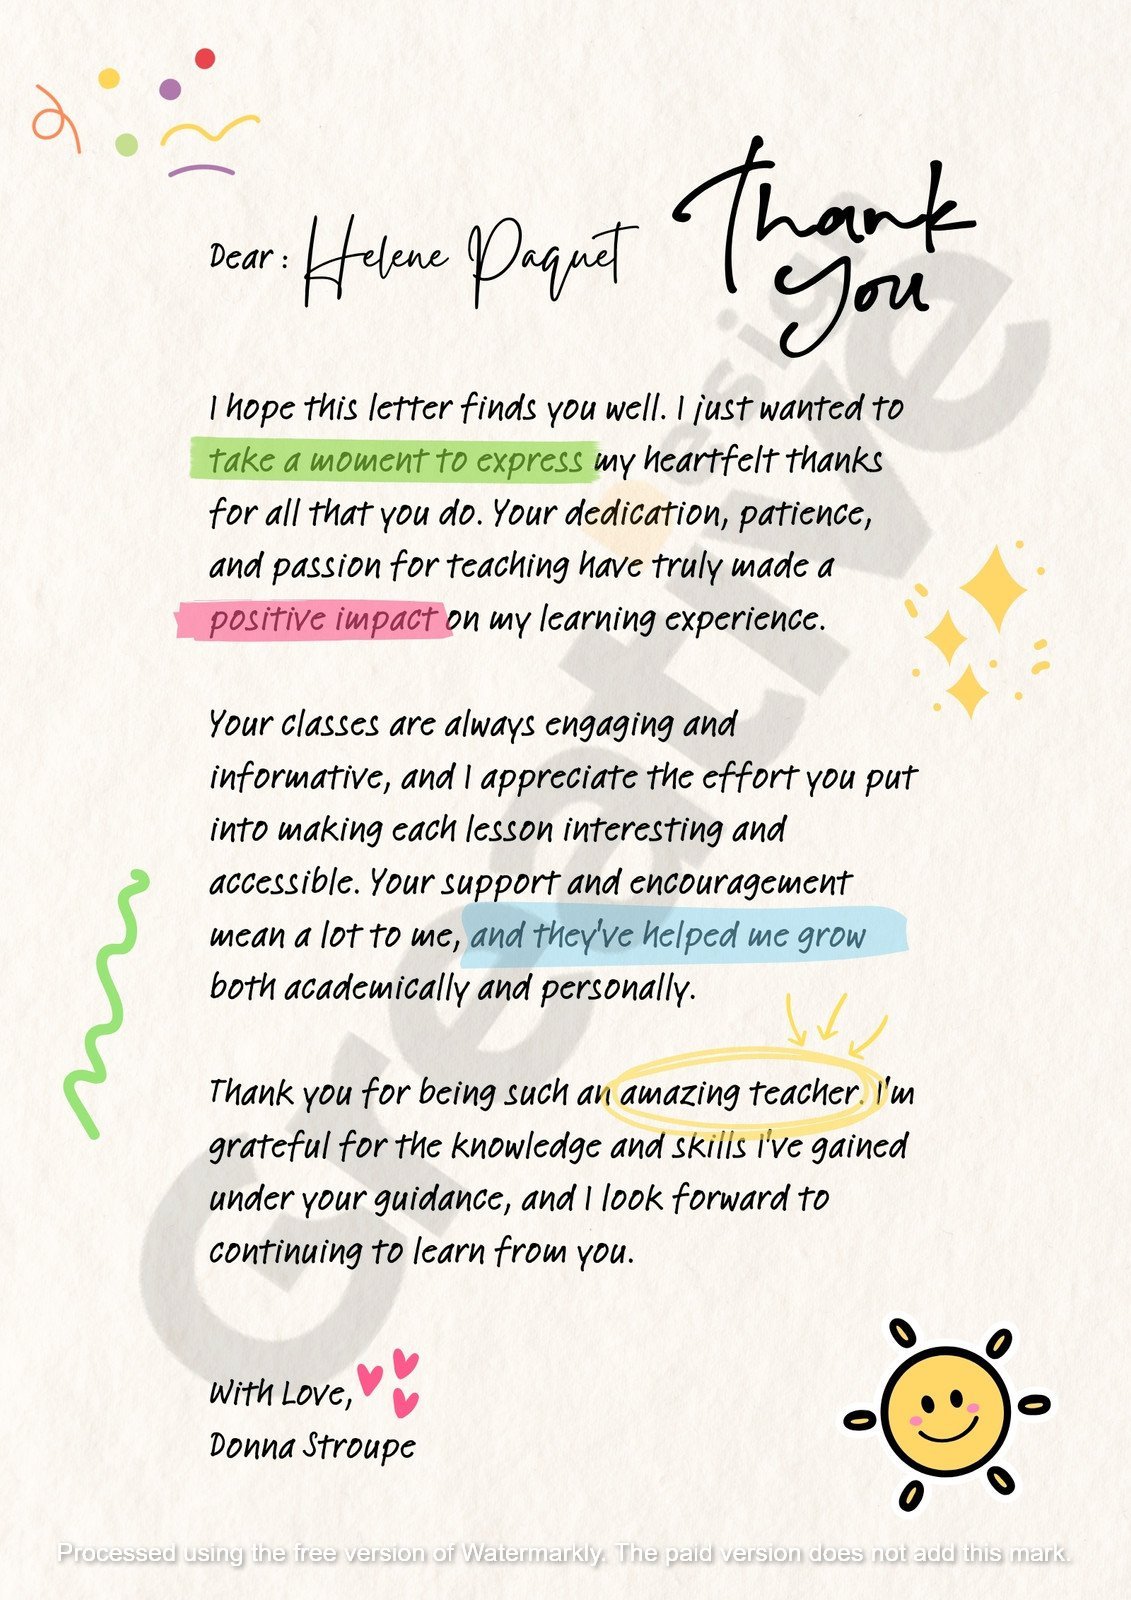 Thank
you
Dear : Helene Paquet
I hope this letter finds you well. I just wanted to
take a moment to express my heartfelt thanks
for all that you do. Your dedication, patience,
and passion for teaching have truly made a
positive impact on my learning experience.
Your classes are always engaging and
informative, and I appreciate the effort you put
into making each lesson interesting and
accessible. Your support and encouragement
mean a lot to me, and they've helped me grow
both academically and personally.
Thank you for being such an amazing teacher. I'm
grateful for the knowledge and skills I've gained
under your guidance, and I look forward to
continuing to learn from you.
With Love,
Donna Stroupe
Greative
Processed using the free version of Watermarkly. The paid version does not add this mark.